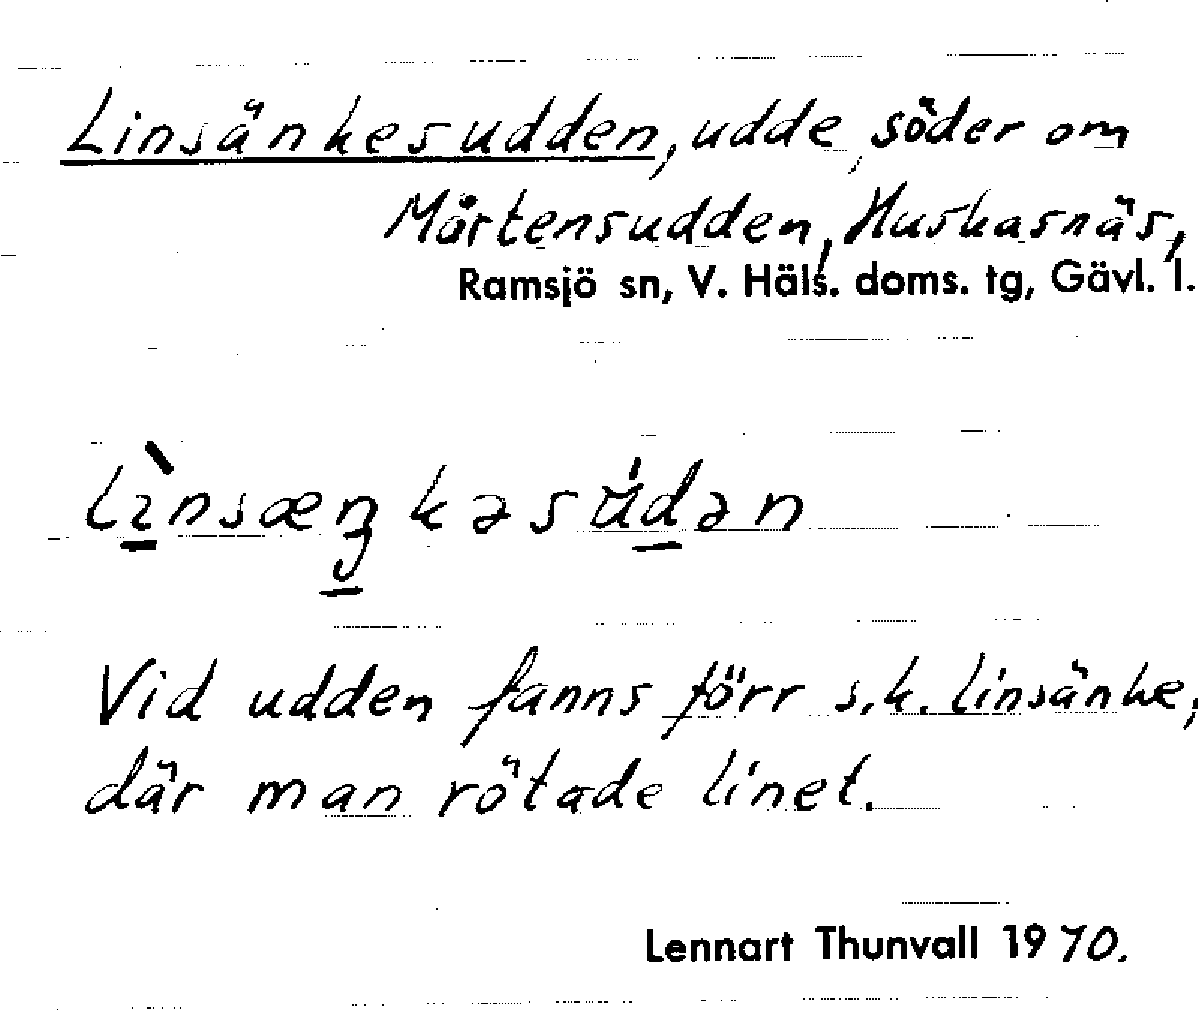 Linsänkesudden, udde, söder om
Mårtensudden, Huskasnäs,
Ramsjö sn, V. Häls. doms. tg, Gävl. l.
Vid udden fanns förr s.k. linsänke,
där man rötade linet.
Lennart Thunvall 1970.